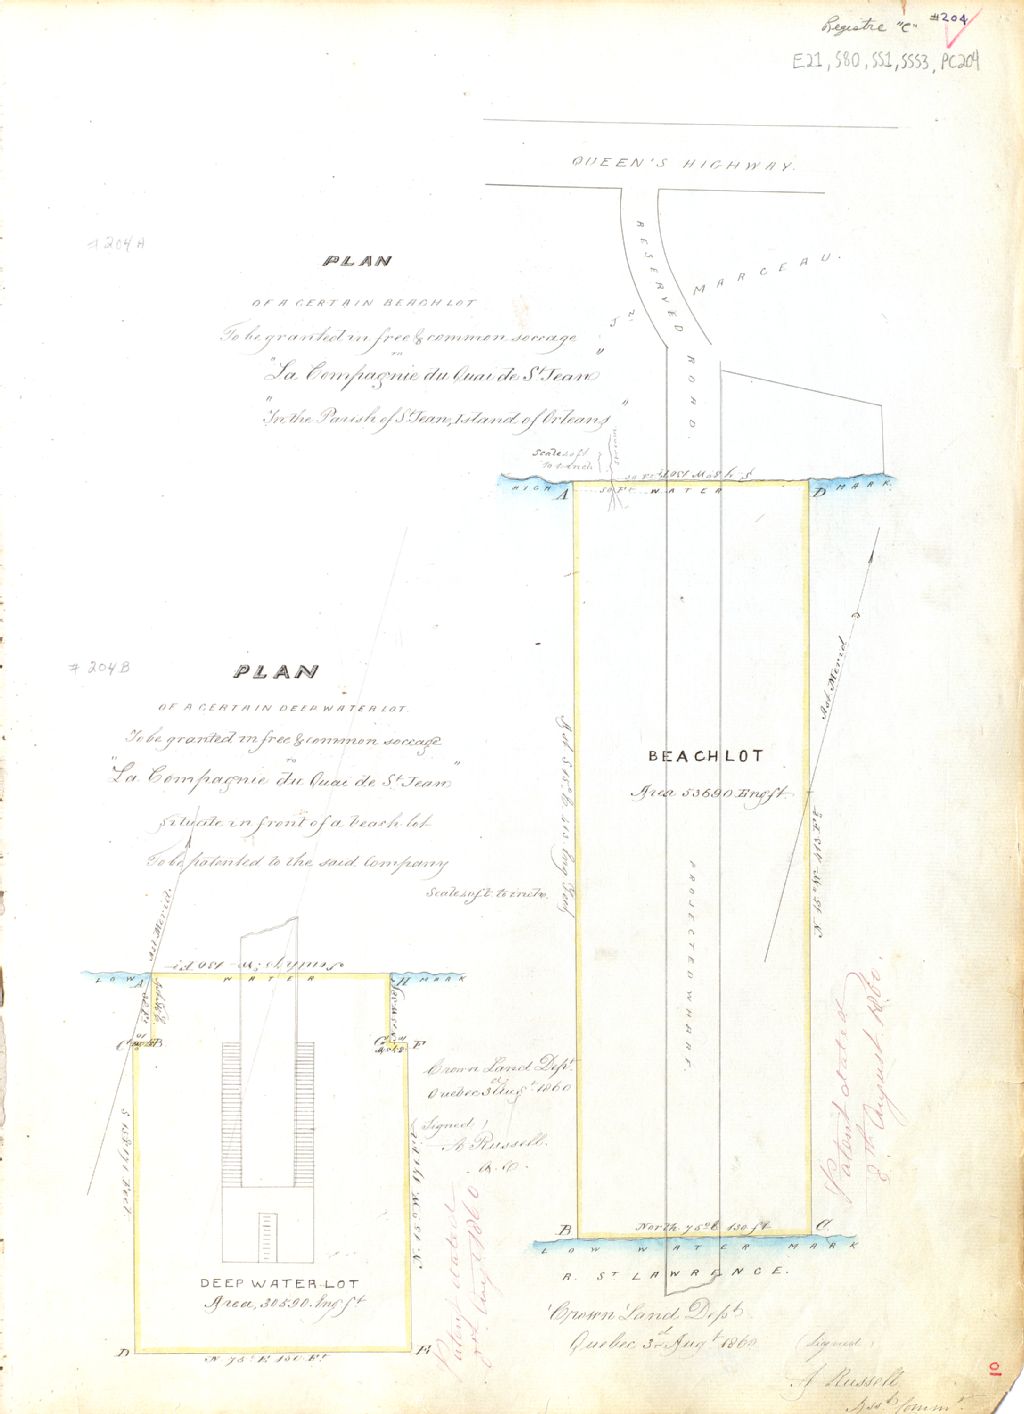 Registre "C" #204
E21, S80, SS1, SSS3, PC204
QUEEN'S HIGHWAY.
RESERVED ROAD.
J. Z. MARCEAU.
# 204 A
PLAN
OF A CERTAIN BEACH LOT
To be granted in free & common soccage
to
"La Compagnie du Quai de St Jean"
"In the Parish of St Jean, Island of Orleans"
Scale 50 ft
to 1 inch
HIGH WATER MARK.
A
50 Ft
D
BEACH LOT
Area 53690 Eng ft
PROJECTED WHARF.
Ast Merid
N 15° W 413 Ft
B
North 75° E 130 ft
C.
LOW WATER MARK
R. ST LAWRENCE.
Crown Land Dept
Quebec 3d Augt 1860
(Signed)
A Russell
Asst Commr
Patent dated
8th August 1860.
# 204 B
PLAN
OF A CERTAIN DEEP WATER LOT.
To be granted in free & common soccage
to
"La Compagnie du Quai de St Jean"
Situate in front of a beach lot
To be patented to the said Company
Scale 50 ft to 1 inch.
Ast Merid.
LOW WATER MARK
A
H
C
B
G
F
DEEP WATER LOT
Area, 30590 Eng ft
D
N 75° E 150 Ft
E
Crown Land Dept
Quebec 3d Augt 1860
(Signed)
A Russell
A. C.
Patent dated
Augt 1860
10